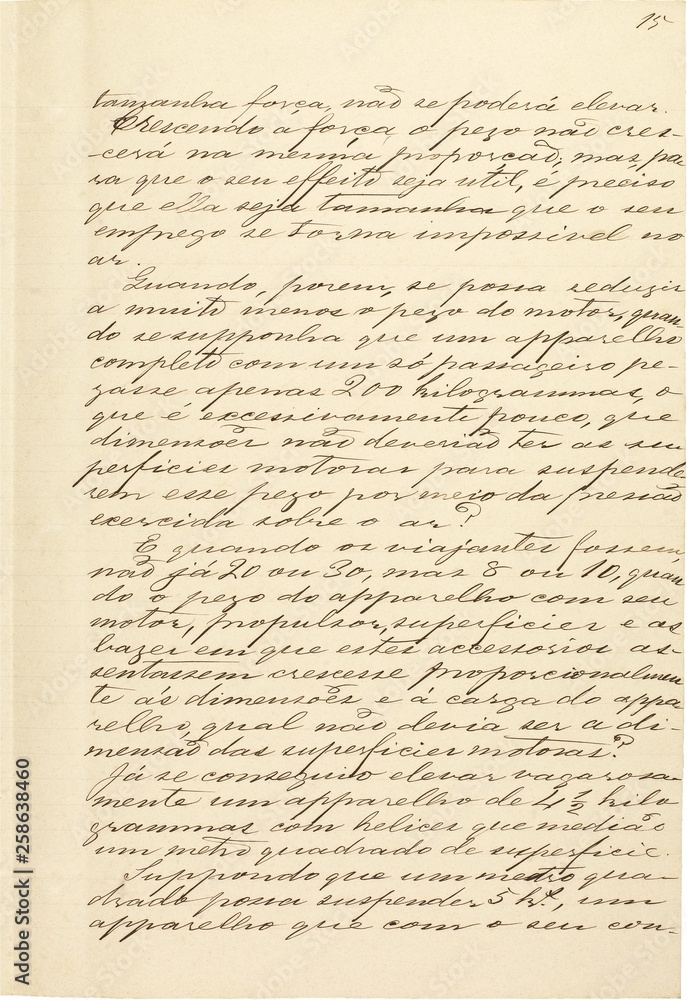 15
tamanha força, não se poderá elevar.
Crescendo a força, o pezo não cres-
-cerá na mesma proporção; mas, pa-
ra que o seu effeito seja util, é preciso
que ella seja tamanha que o seu
emprego se torna impossivel no
ar.
Quando, porem, se possa reduzir
a muito menos o pezo do motor, quan
do se supponha que um apparelho
completo com um só passageiro pe-
zasse apenas 200 kilogrammas, o
que é excessivamente pouco, que
dimensões não deverião ter as su
perficies motoras para suspende-
rem esse pezo por meio da pressão
exercida sobre o ar?
E quando os viajantes fossem,
não já 20 ou 30, mas 8 ou 10, quan
do o pezo do apparelho com seu
motor, propulsor, superficies e as
bazes em que estes accessorios as-
sentassem crescesse proporcionalmen
te ás dimensões e á carga do appa
relho, qual não devia ser a di-
mensão das superficies motoras?
Já se conseguio elevar vagarosa-
mente um apparelho de 4 1/2 kilo
grammas com helices que medião
um metro quadrado de superficie.
Suppondo que um metro qua-
drado possa suspender 5 k.ˢ, um
apparelho que com o seu con-
Adobe Stock | #258638460